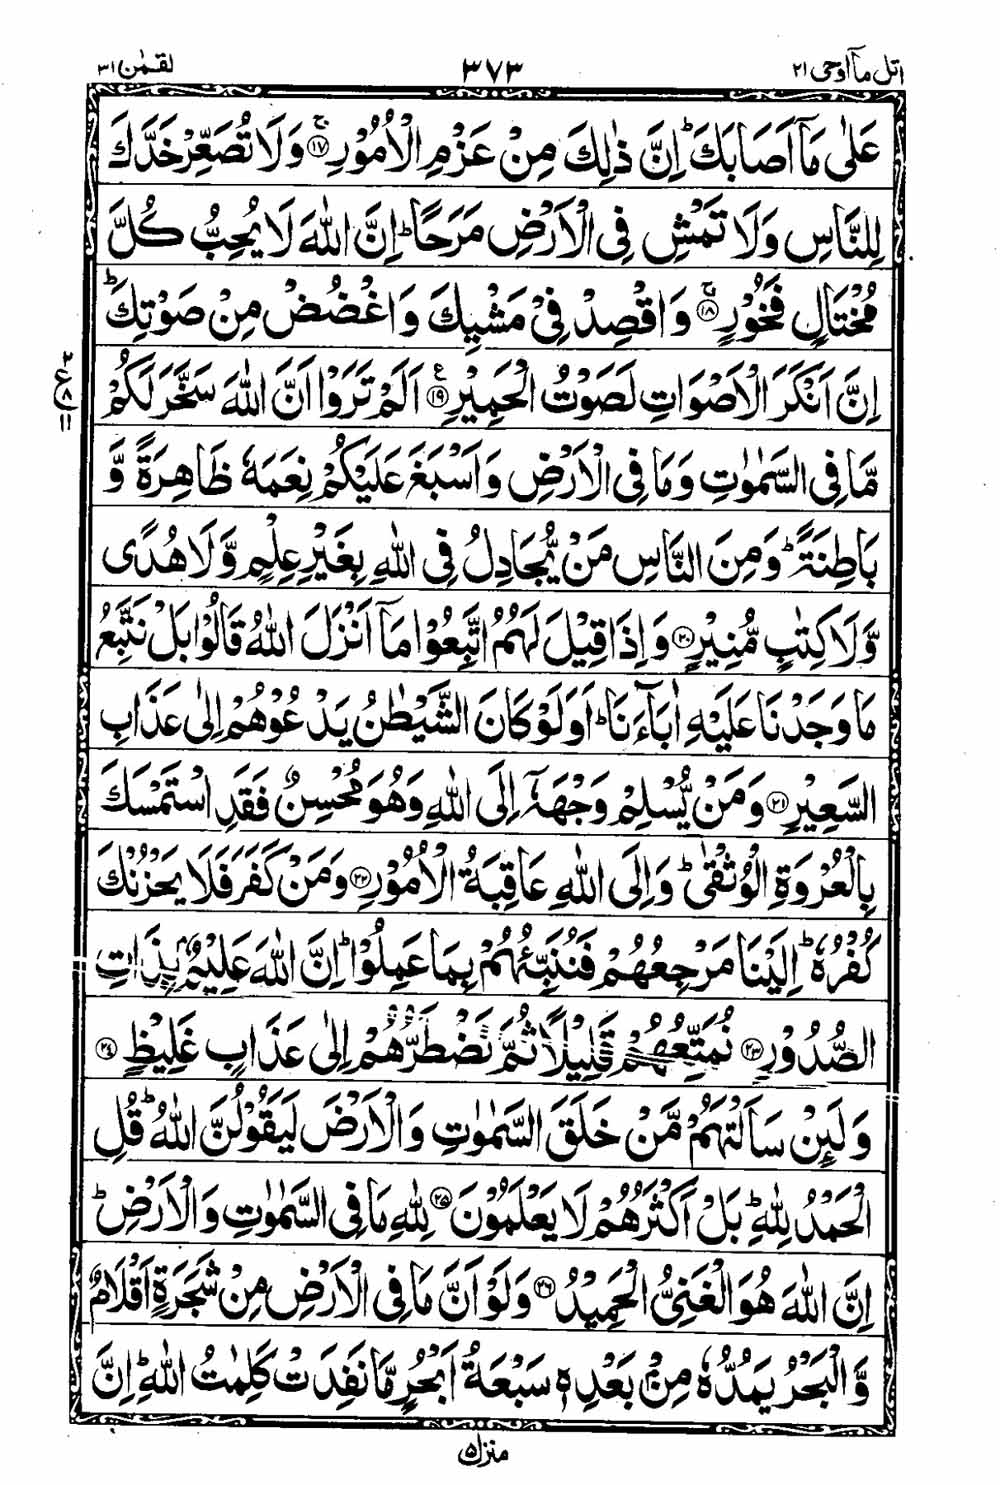 اتل مآ اوحی ۲۱ ۳۷۳ لقمٰن ۳۱
عَلٰى مَاۤ اَصَابَكَؕ اِنَّ ذٰلِكَ مِنْ عَزْمِ الْاُمُوْرِۚ‏﴿۱۷﴾ وَلَا تُصَعِّرْ خَدَّكَ
لِلنَّاسِ وَلَا تَمْشِ فِى الْاَرْضِ مَرَحًاؕ اِنَّ اللّٰهَ لَا يُحِبُّ كُلَّ
مُخْتَالٍ فَخُوْرٍۚ‏﴿۱۸﴾ وَاقْصِدْ فِىْ مَشْيِكَ وَاغْضُضْ مِنْ صَوْتِكَؕ
اِنَّ اَنْكَرَ الْاَصْوَاتِ لَصَوْتُ الْحَمِيْرِ‏﴿۱۹﴾ع اَلَمْ تَرَوْا اَنَّ اللّٰهَ سَخَّرَ لَكُمْ
۲
ع
۸
۱۱
مَّا فِى السَّمٰوٰتِ وَمَا فِى الْاَرْضِ وَاَسْبَغَ عَلَيْكُمْ نِعَمَهٗ ظَاهِرَةً وَّ
بَاطِنَةًؕ وَمِنَ النَّاسِ مَنْ يُّجَادِلُ فِى اللّٰهِ بِغَيْرِ عِلْمٍ وَّلَا هُدًى
وَّلَا كِتٰبٍ مُّنِيْرٍ‏﴿۲۰﴾ وَاِذَا قِيْلَ لَهُمُ اتَّبِعُوْا مَاۤ اَنْزَلَ اللّٰهُ قَالُوْا بَلْ نَتَّبِعُ
مَا وَجَدْنَا عَلَيْهِ اٰبَآءَنَاؕ اَوَلَوْ كَانَ الشَّيْطٰنُ يَدْعُوْهُمْ اِلٰى عَذَابِ
السَّعِيْرِ‏﴿۲۱﴾ وَمَنْ يُّسْلِمْ وَجْهَهٗۤ اِلَى اللّٰهِ وَهُوَ مُحْسِنٌ فَقَدِ اسْتَمْسَكَ
بِالْعُرْوَةِ الْوُثْقٰىؕ وَاِلَى اللّٰهِ عَاقِبَةُ الْاُمُوْرِ‏﴿۲۲﴾ وَمَنْ كَفَرَ فَلَا يَحْزُنْكَ
كُفْرُهٗؕ اِلَيْنَا مَرْجِعُهُمْ فَنُنَبِّئُهُمْ بِمَا عَمِلُوْاؕ اِنَّ اللّٰهَ عَلِيْمٌۢ بِذَاتِ
الصُّدُوْرِ‏﴿۲۳﴾ نُمَتِّعُهُمْ قَلِيْلًا ثُمَّ نَضْطَرُّهُمْ اِلٰى عَذَابٍ غَلِيْظٍ‏﴿۲۴﴾
وَلَئِنْ سَاَلْتَهُمْ مَّنْ خَلَقَ السَّمٰوٰتِ وَالْاَرْضَ لَيَقُوْلُنَّ اللّٰهُؕ قُلِ
الْحَمْدُ لِلّٰهِؕ بَلْ اَكْثَرُهُمْ لَا يَعْلَمُوْنَ‏﴿۲۵﴾ لِلّٰهِ مَا فِى السَّمٰوٰتِ وَالْاَرْضِؕ
اِنَّ اللّٰهَ هُوَ الْغَنِىُّ الْحَمِيْدُ‏﴿۲۶﴾ وَلَوْ اَنَّ مَا فِى الْاَرْضِ مِنْ شَجَرَةٍ اَقْلَامٌ
وَّالْبَحْرُ يَمُدُّهٗ مِنْۢ بَعْدِهٖ سَبْعَةُ اَبْحُرٍ مَّا نَفِدَتْ كَلِمٰتُ اللّٰهِؕ اِنَّ
منزل ۵